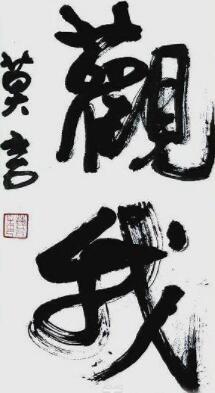 觀我
莫言